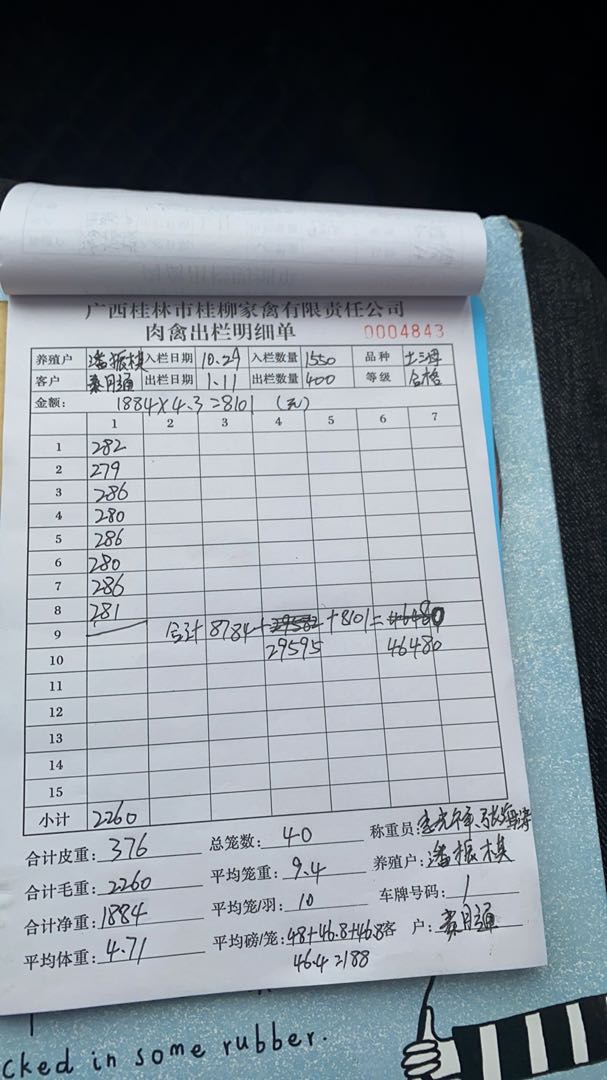 广西桂林市桂柳家禽有限责任公司
肉禽出栏明细单 0004843
养殖户 潘振模 入栏日期 10.29 入栏数量 1550 品种 土三
客户 秦月通 出栏日期 1.11 出栏数量 400 等级 合格
金额: 1884×4.3=8101 (元)
1 2 3 4 5 6 7
1 282
2 279
3 286
4 280
5 286
6 280
7 286
8 281
9 合计 8784+29582+8101=46480
10 29595 46480
11
12
13
14
15
小计 2260
合计皮重: 376 总笼数: 40 称重员:
合计毛重: 2260 平均笼重: 9.4 养殖户: 潘振模
合计净重: 1884 平均笼/羽: 10 车牌号码: 1
平均体重: 4.71 平均磅/笼: 48+46.8+46.8 客户: 秦月通
46.4=188
cked in some rubber.